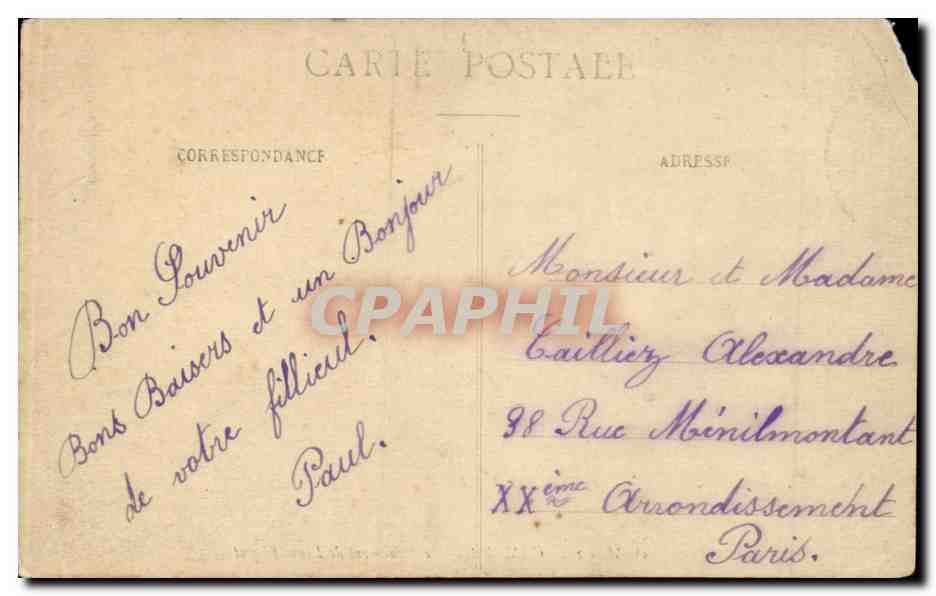 CARTE POSTALE
CORRESPONDANCE
ADRESSE
Bon Souvenir
Bons Baisers et un Bonjour
de votre fillieul.
Paul.
CPAPHIL
Monsieur et Madame
Tailliez Alexandre
98 Rue Ménilmontant
XXème Arrondissement
Paris.